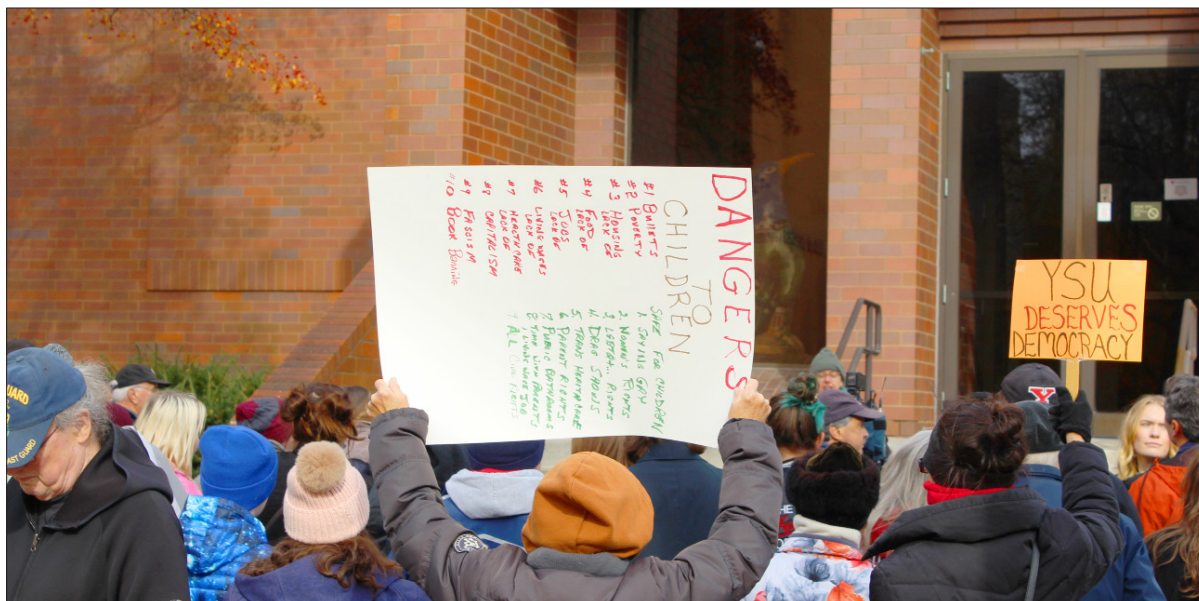 DANGERS
TO
CHILDREN
#1 BULLETS
#2 POVERTY
#3 LACK OF
HOUSING
#4 LACK OF
FOOD
#5 LACK OF
JOBS
#6 LACK OF
LIVING WAGES
#7 LACK OF
HEALTHCARE
#8 CAPITALISM
#9 FASCISM
#10 BOOK BANNING
SAFE FOR CHILDREN
1. SAYING GAY
2. WOMEN RIGHTS
3. LGBTQ... RIGHTS
4. DRAG SHOWS
5. TRANS HEALTHCARE
6. PARENT RIGHTS
7. PUBLIC BATHROOMS
8. TIME WITH PARENTS
ALL CIVIL RIGHTS
YSU
DESERVES
DEMOCRACY
Y
GUARD